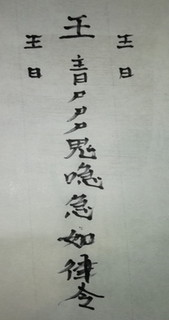 王日
王尸尸尸鬼喼急如律令
王日